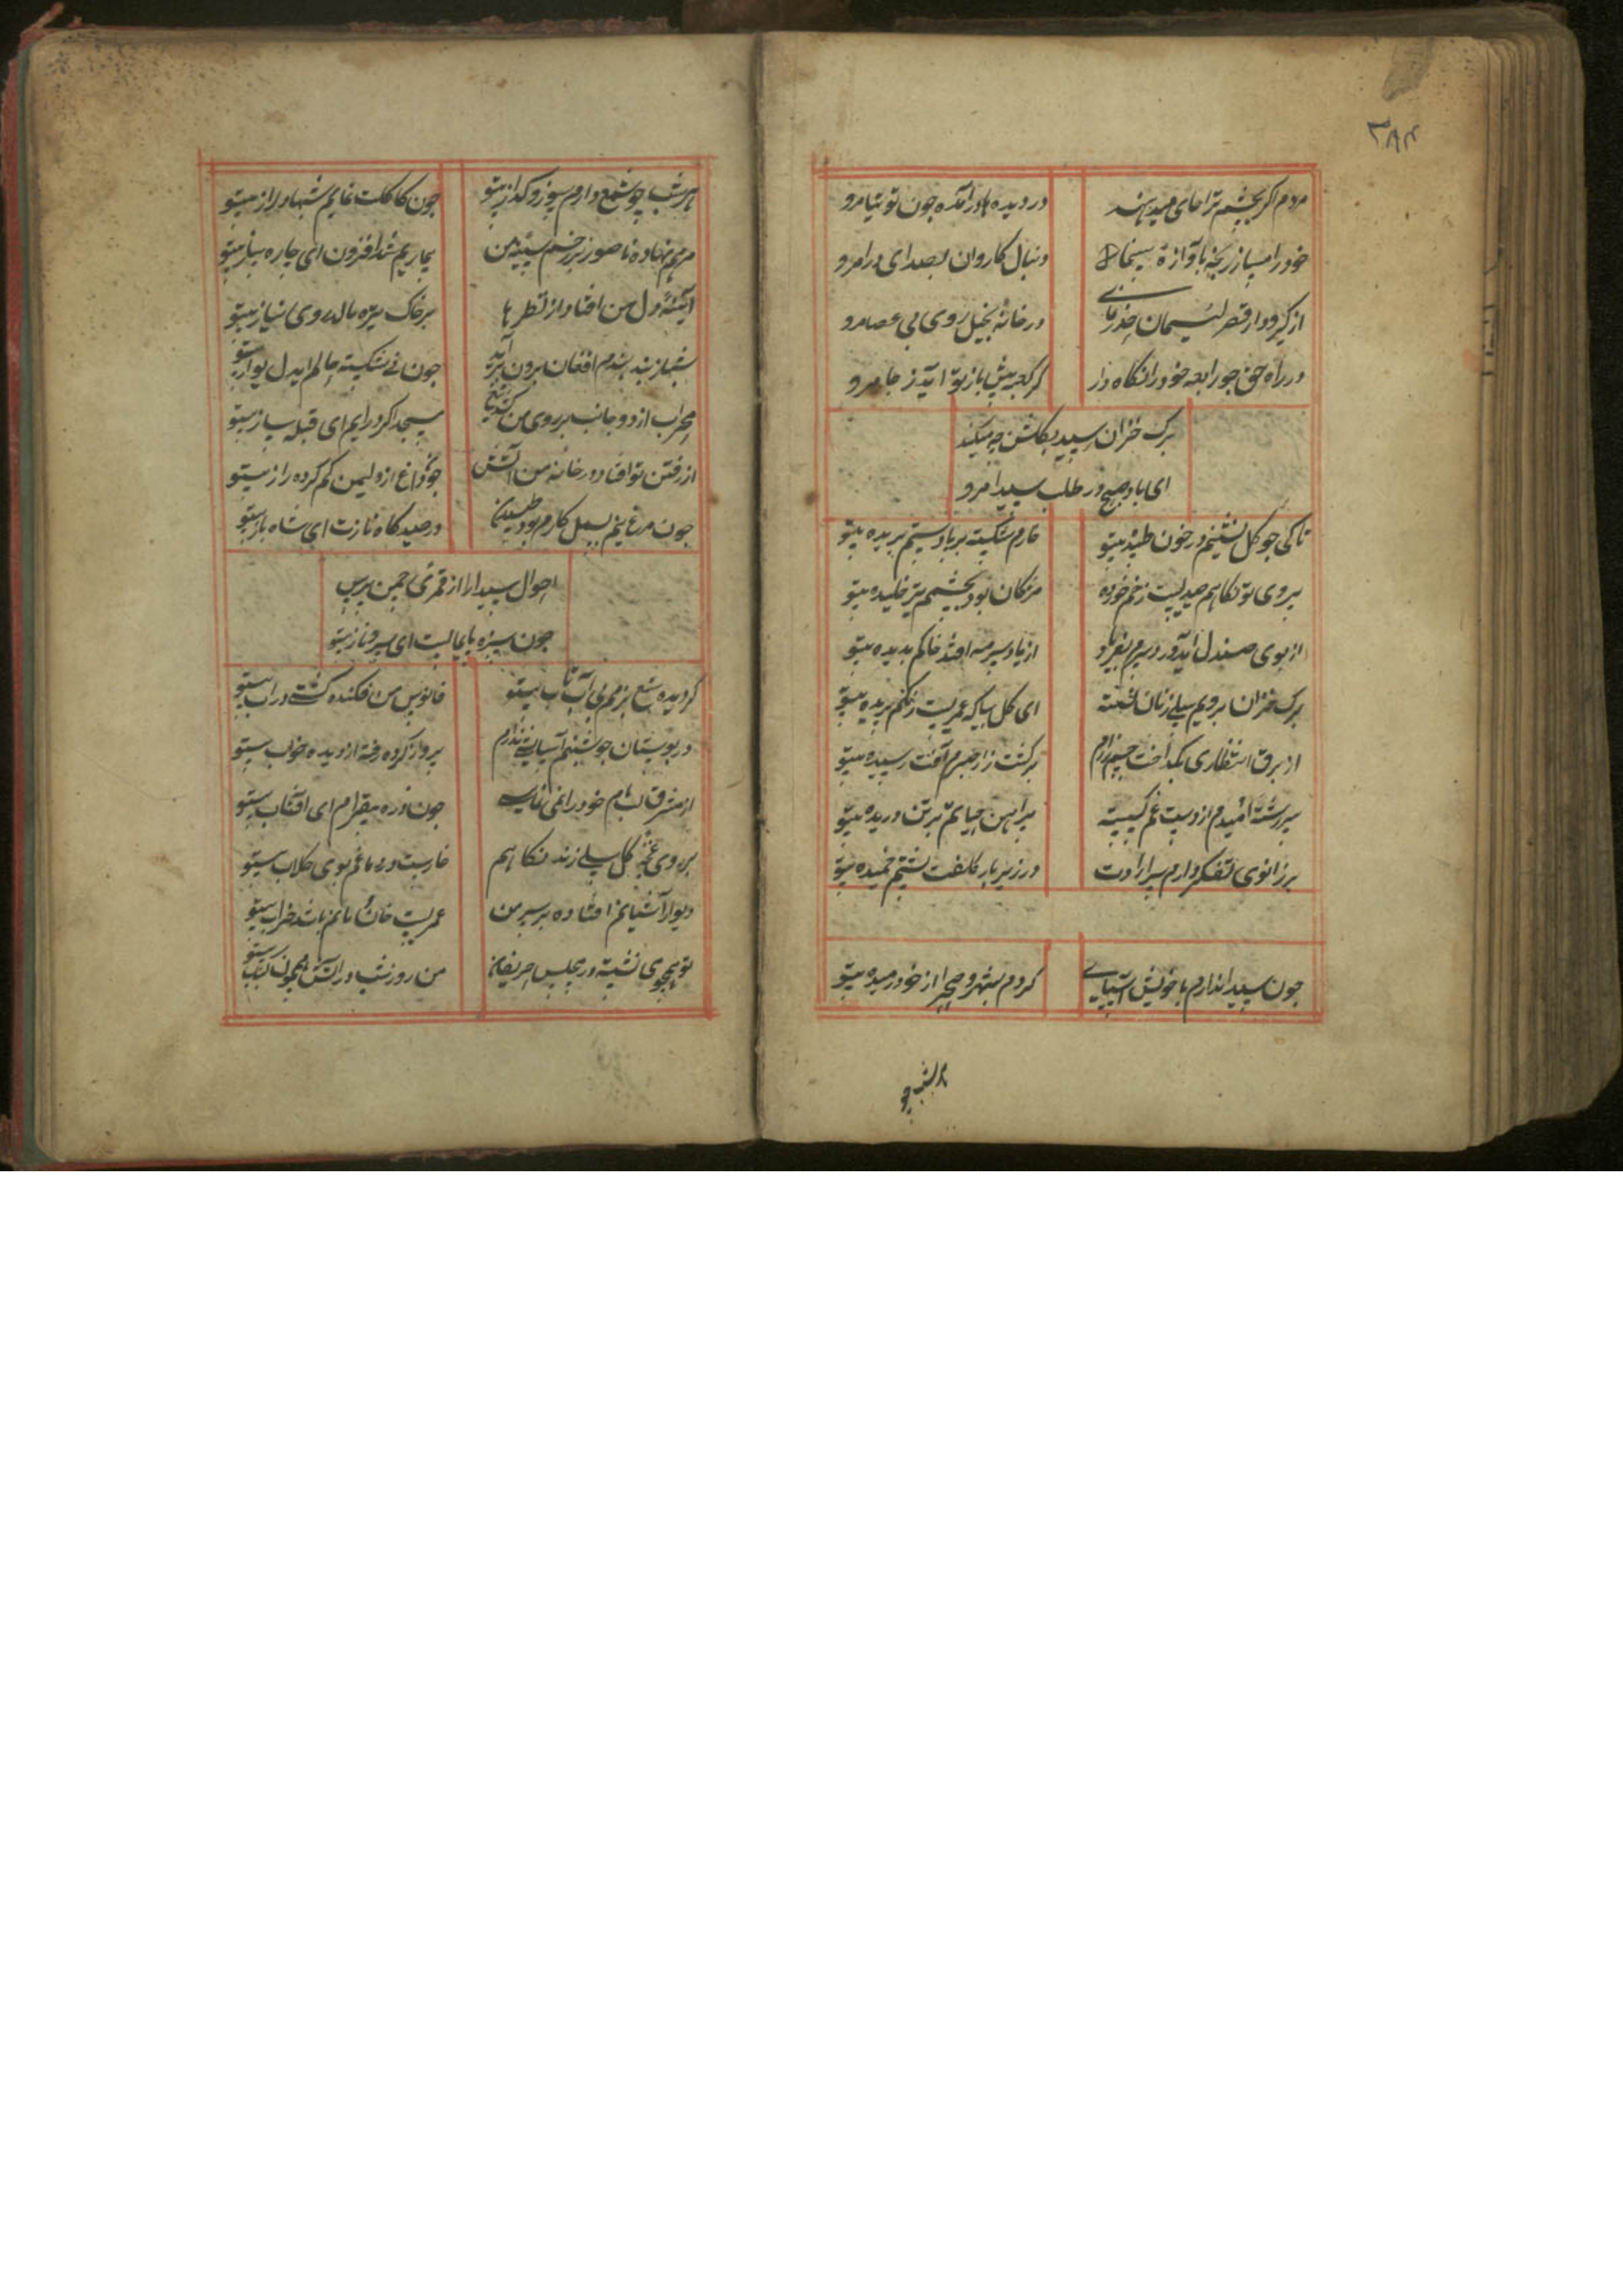 ۳۸۴
مردم اگر بچشم ترا جای میدهند
در دیده ها در آمده چون توتیا مرو
خود را مساز رنجه بآوازه سیما
دنبال کاروان بصدای درا مرو
از کیرودار قصر لئیمان
در خانه بخیل روی بی عصا مرو
در راه حق چو رابعه خود را نکاه دار
کر کعبه پیش باز تو آید ز جا مرو
برک خزان رسید بکلشن چه میکند
ای باد صبح در طلب سیدا مرو
تا کی چو کل نشینم در خون طپیده بیتو
خارم شکسته بر پا دستم بریده بیتو
بر روی تو نکاهم صیدیست زخم خورده
مژکان بود بچشمم تیر خلیده بیتو
از بوی صندل آید درد سرم بفریاد
از یاد سرمه افتد خاکم بدیده بیتو
برک خزان برویم سیلی زنان کذشته
ای کل بیا که عمریست رنکم پریده بیتو
از برق انتظاری بکداخت
بر کشت زار صبرم آفت رسیده بیتو
سر رشته امیدم از دست غم کسسته
پیراهن حیاتم بر تن دریده بیتو
بر زانوی تفکر دارم سر ارادت
در زیر بار کلفت پشتم خمیده بیتو
چون سیدا ندارم با خویش آشنایی
کردم بشهر و صحرا از خود رمیده بیتو
هر شب چو
هر شب چو شمع دارم سوز و کداز بیتو
چون کاکلت نمایم شبها دراز بیتو
مرهم نهاده ناصور بر زخم سینه من
بیماریم شد افزون ای چاره ساز بیتو
آئینه دل من افتاد از نظرها
بر خاک تیره مالد روی نیاز بیتو
شبها ز بند بندم افغان برون برآید
چون نی شکسته حالم ای دلنواز بیتو
محراب از دو جانب بر روی من کشد تیغ
مسجد اکر درایم ای قبله ساز بیتو
از رفتن تو افتاد در خانه من آتش
در صیدکاه نازت ای شاه باز بیتو
چون مرغ نیم بسمل کارم بود طپیدن
احوال سیدا را از قمری چمن پرس
چون سبزه پایمالست ای سرو ناز بیتو
کردیده شمع بزمم بی آب و تاب بیتو
فانوس من فکنده کشتی در آب بیتو
در بوستان چو شبنم آسایشی ندارم
پرواز کرده رفته از دیده خواب بیتو
از مشرق لب بام خود را نمی نمایی
چون ذره بیقرارم ای افتاب بیتو
بر روی غنچه کل سیلی زند نکاهم
خاریست در دماغم بوی کلاب بیتو
دیوار آشیانم افتاده بر سر من
عمریست خانمانم باشد خراب بیتو
تو همچو می نشسته در مجلس حریفان
من روز و شب در آتش همچون کباب بیتو